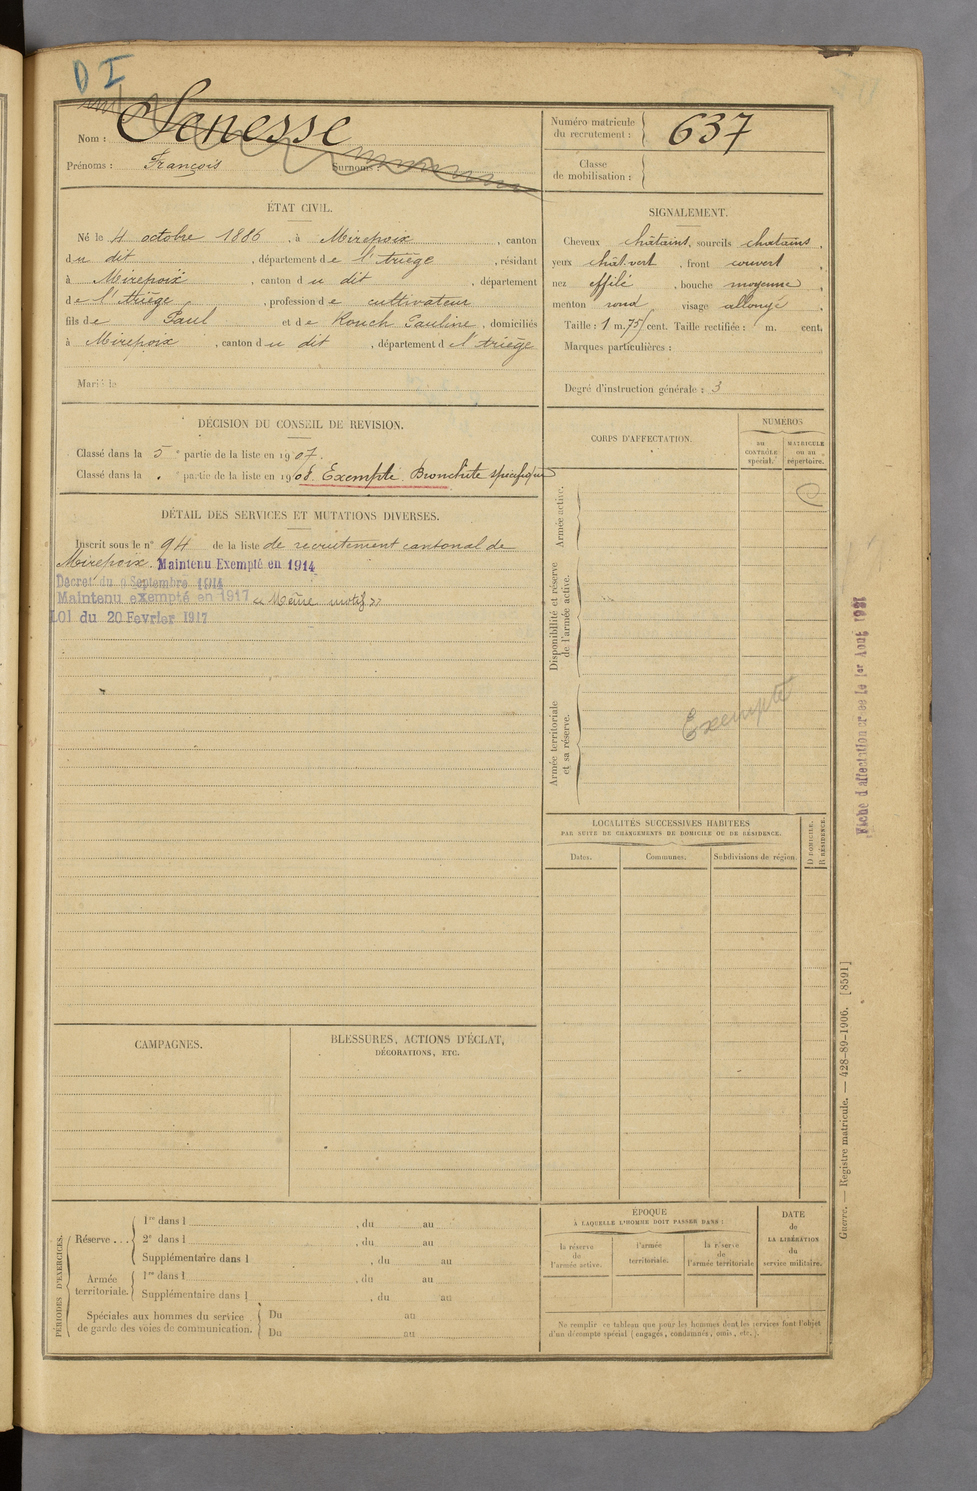 D I
Nom : Senesse
Prénoms : François Surnoms :
Numéro matricule
du recrutement : 637
Classe
de mobilisation :
ÉTAT CIVIL.
Né le 4 octobre 1886, à Mirepoix, canton
du dit, département de l'Ariège, résidant
à Mirepoix, canton du dit, département
de l'Ariège, profession de cultivateur
fils de Paul et de Rouch Pauline, domiciliés
à Mirepoix, canton du dit, département d l'Ariège
Marié le
SIGNALEMENT.
Cheveux châtains, sourcils chatains,
yeux chât. vert, front couvert,
nez effilé, bouche moyenne,
menton rond visage allongé.
Taille : 1 m. 75 cent. Taille rectifiée : m. cent.
Marques particulières :
Degré d'instruction générale : 3
DÉCISION DU CONSEIL DE REVISION.
Classé dans la 5e partie de la liste en 1907.
Classé dans la e partie de la liste en 1908. Exempté. Bronchite spécifique
DÉTAIL DES SERVICES ET MUTATIONS DIVERSES.
Inscrit sous le n° 94 de la liste de recrutement cantonal de
Mirepoix. Maintenu Exempté en 1914
Décret du 9 Septembre 1914
Maintenu exempté en 1917 « Même motif »
LOI du 20 Fevrier 1917
CORPS D'AFFECTATION.
NUMÉROS
AU
CONTRÔLE
spécial.
MATRICULE
ou au
répertoire.
Armée active.
Disponibilité et réserve
de l'armée active.
Armée territoriale
et sa réserve.
Exempté
Fiche d'affectation créée le 1er Août 1921
LOCALITÉS SUCCESSIVES HABITÉES
PAR SUITE DE CHANGEMENTS DE DOMICILE OU DE RÉSIDENCE.
Dates.
Communes.
Subdivisions de région.
D DOMICILE.
R RÉSIDENCE.
CAMPAGNES.
BLESSURES, ACTIONS D'ÉCLAT,
DÉCORATIONS, ETC.
PÉRIODES D'EXERCICES.
Réserve...
1re dans l , du au
2e dans l , du au
Supplémentaire dans l , du au
Armée
territoriale.
1re dans l , du au
Supplémentaire dans l , du au
Spéciales aux hommes du service
de garde des voies de communication.
Du au
Du au
ÉPOQUE
À LAQUELLE L'HOMME DOIT PASSER DANS :
la réserve
de
l'armée active.
l'armée
territoriale.
la réserve
de
l'armée territoriale
DATE
de
LA LIBÉRATION
du
service militaire.
Ne remplir ce tableau que pour les hommes dont les services font l'objet
d'un décompte spécial (engagés, condamnés, omis, etc.).
Guerre. — Registre matricule. — 428-89-1906. [8591]